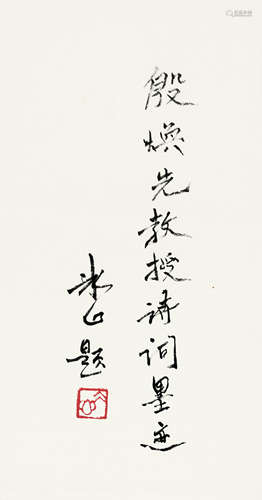 殷焕先教授诗词墨迹
题